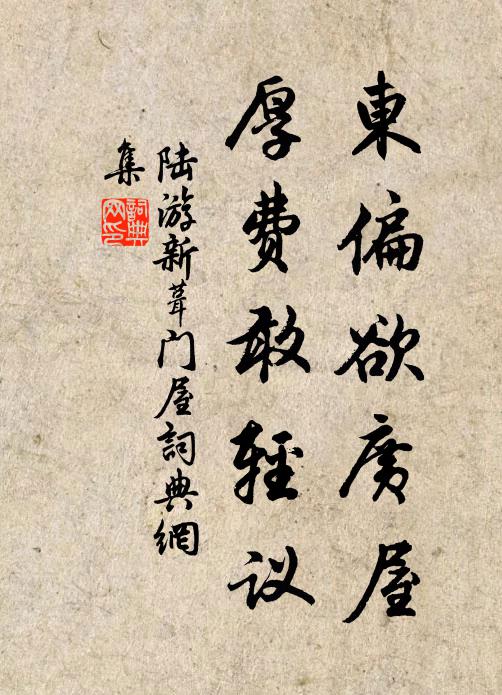 東偏欲广屋
厚费敢輕议
陆游新葺门屋詞典網
集
詞典
网印